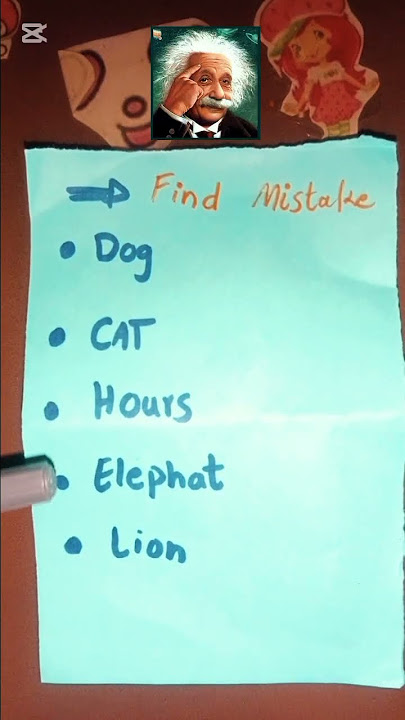 Find Mistake
Dog
CAT
Hours
Elephat
Lion